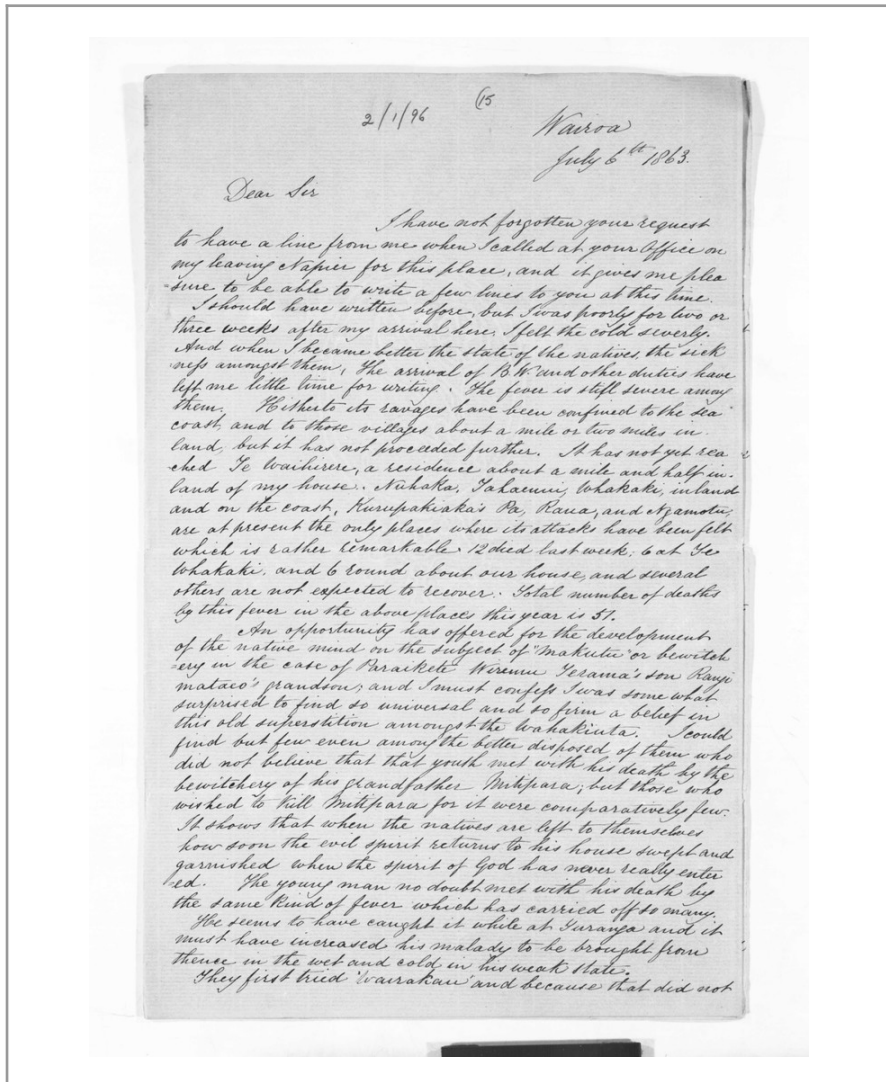 2/1/96
(15
Wairoa
July 6th 1863.
Dear Sir
I have not forgotten your request
to have a line from me when I called at your Office on
my leaving Napier for this place, and it gives me plea
=sure to be able to write a few lines to you at this time.
I should have written before, but I was poorly for two or
three weeks after my arrival here, I felt the cold severly.
And when I became better the state of the natives, the sick
ness amongst them, The arrival of B.W. and other duties have
left me little time for writing. The fever is still severe among
them. Hitherto its ravages have been confined to the sea
coast, and to those villages about a mile or two miles in
land, but it has not proceeded further. It has not yet rea
ched Te Waihirere, a residence about a mile and half in-
land of my house. Nuhaka, Tahaenui, Whakaki, inland
and on the coast, Kurupakiaka's Pa, Raua, and Ngamotu,
are at present the only places where its attacks have been felt
which is rather remarkable. 12 died last week; 6 at Te
Whakaki, and 6 round about our house, and several
others are not expected to recover. Total number of deaths
by this fever in the above places this year is 51.
An opportunity has offered for the development
of the native mind on the subject of "Makutu" or bewitch
=ery in the case of Paraikete Wiremu Terama's son Rangi
mataeo's grandson; and I must confess I was some what
surprised to find so universal and so firm a belief in
this old superstition amongst the Wahakiuta. I could
find but few even among the better disposed of them who
did not believe that that youth met with his death by the
bewitchery of his grandfather Mitipara; but those who
wished to kill Mitipara for it were comparatively few.
It shows that when the natives are left to themselves
how soon the evil spirit returns to his house swept and
garnished when the spirit of God has never really enter
=ed. The young man no doubt met with his death by
the same kind of fever which has carried off so many.
He seems to have caught it while at Turanga and it
must have increased his malady to be brought from
thence in the wet and cold in his weak state.
They first tried 'Wairakau' and because that did not